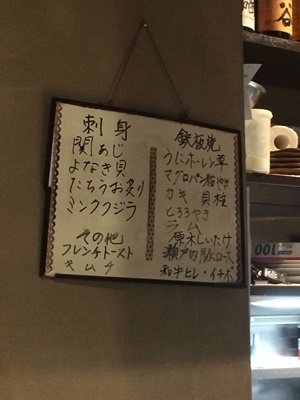 刺身
関あじ
よなき貝
たちうお炙り
ミンククジラ
その他
フレンチトースト
キムチ
鉄板焼
うにホーレン草
マグロ
カキ 貝柱
とろろやき
ラム
原木しいたけ
瀬戸内 豚ロース
和牛ヒレ・イチボ
谷
OOL